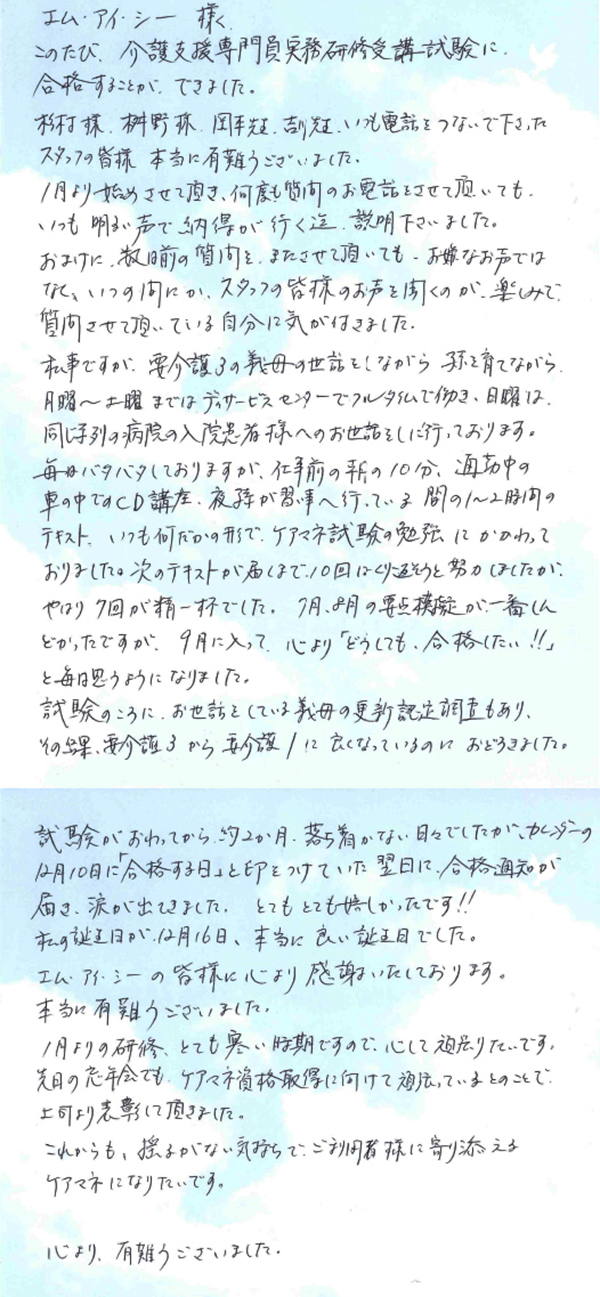 エム・アイ・シー 様
このたび、介護支援専門員実務研修受講試験に
合格することができました。
杉村様、桝野様、岡本先生、吉沢先生、いつも電話をつないで下さった
スタッフの皆様 本当に有難うございました。
1月より始めさせて頂き、何度も質問のお電話をさせて頂いても、
いつも明るい声で納得が行く迄、説明下さいました。
おまけに、数日前の質問を、またさせて頂いても、お嫌なお声では
なく、いつの間にか、スタッフの皆様のお声を聞くのが、楽しみで、
質問させて頂いている自分に気が付きました。
私事ですが、要介護3の義母の世話をしながら 孫を育てながら
月曜〜土曜まではデイサービスセンターでフルタイムで働き、日曜は、
同じ系列の病院の入院患者様へのお世話をしに行っております。
毎日バタバタしておりますが、仕事前の朝の10分、通勤中の
車の中でのCD講座、夜孫が習い事へ行っている間の1〜2時間の
テキスト、いつも何だかの形で、ケアマネ試験の勉強にかかわって
おりました。次のテキストが届くまで、10回はくり返そうと努力しましたが、
やはり7回が精一杯でした。7月、8月の要点模擬が一番しん
どかったですが、9月に入って、心より「どうしても、合格したい!!」
と毎日思うようになりました。
試験のころに、お世話をしている義母の更新認定調査もあり、
その結果、要介護3から要介護1に良くなっているのにおどろきました。
試験がおわってから、約2か月、落ち着かない日々でしたが、カレンダーの
12月10日に「合格する日」と印をつけていた翌日に、合格通知が
届き、涙が出てきました。とてもとても嬉しかったです!!
私の誕生日が、12月16日、本当に良い誕生日でした。
エム・アイ・シーの皆様に心より感謝いたしております。
本当に有難うございました。
1月よりの研修、とても寒い時期ですので、心して頑張りたいです。
先日の忘年会でも、ケアマネ資格取得に向けて頑張っているとのことで、
上司より表彰して頂きました。
これからも、揺るがない気持ちで、ご利用者様に寄り添える
ケアマネになりたいです。
心より、有難うございました。